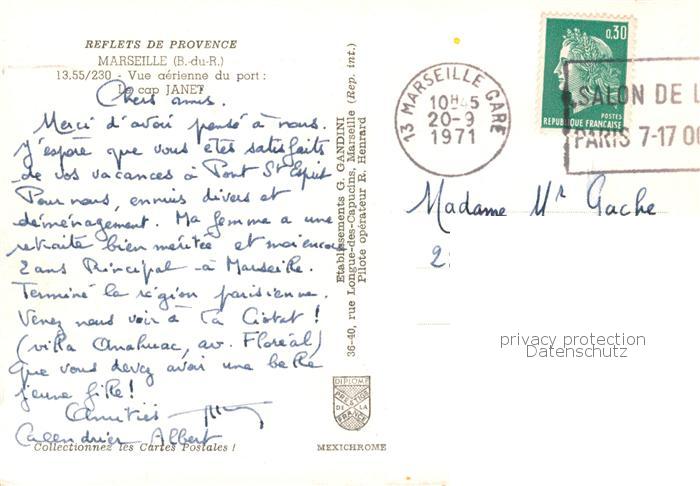 REFLETS DE PROVENCE
MARSEILLE (B.-du-R.)
13.55/230 - Vue aérienne du port :
Le cap JANET
Chers amis.
Merci d'avoir pensé à nous.
J'espère que vous êtes satisfaits
de vos vacances à Pont St Esprit
Pour nous, ennuis divers et
déménagement. Ma femme a une
retraite bien méritée et moi encore
2 ans Principal à Marseille.
Terminé la région parisienne.
Venez nous voir à La Ciotat !
(villa Anahuac, av. Floréal)
Que vous devez avoir une belle
jeune fille !
Amitiés
Calendrier Albert
Collectionnez les Cartes Postales !
Etablissements G. GANDINI
36-40, rue Longue-des-Capucins, Marseille (Rep. int.)
Pilote opérateur R. Henrard
DIPLOME
PRESTIGE
DE LA
FRANCE
MEXICHROME
13 MARSEILLE GARE
10H45
20-9
1971
0,30
POSTES
REPUBLIQUE FRANÇAISE
SALON DE L
PARIS 7-17 OC
Madame Mr Gache
2
privacy protection
Datenschutz